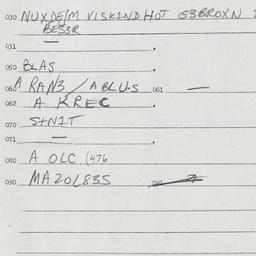 030 NUXDE/M VISKINDHOT G3BROXN
BES3R
031 — .
050 BLAS .
060 A RAN3 / ABLUS 061 —
062 A KREC
070 S+NIT .
071 — .
080 A OLC (476
090 MAZOL835